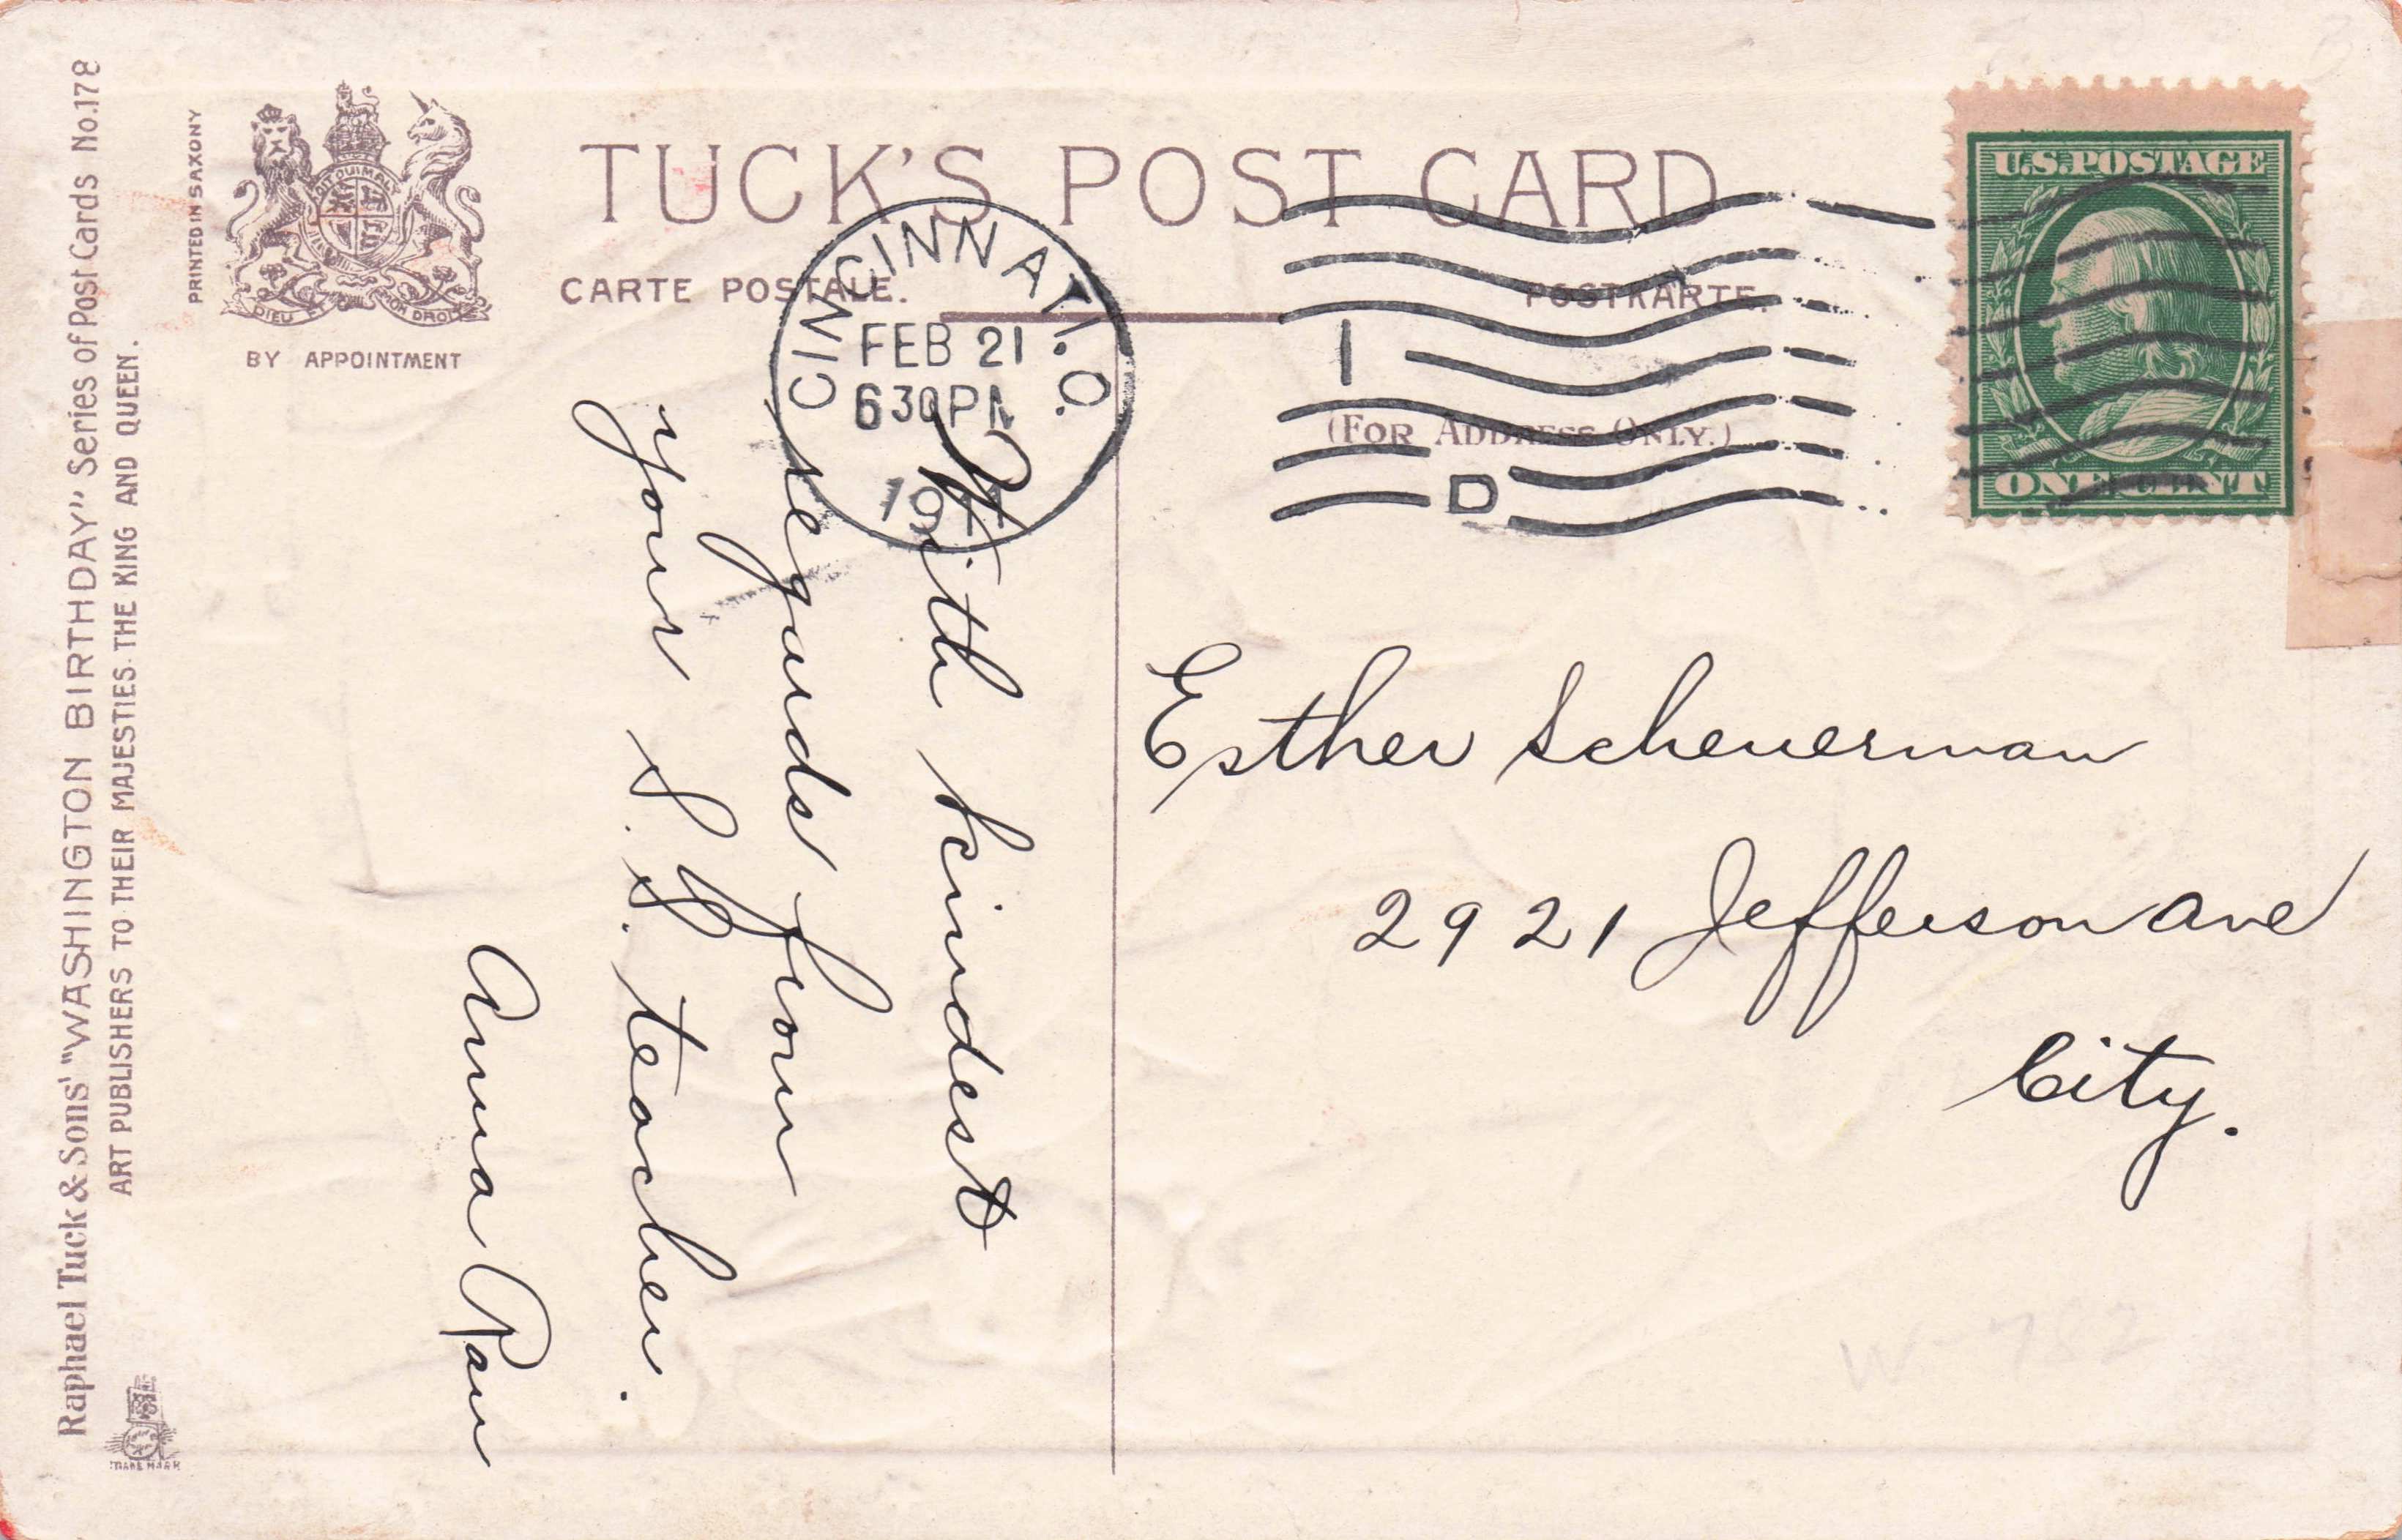 Raphael Tuck & Sons' "WASHINGTON BIRTHDAY" Series of Post Cards No.178
ART PUBLISHERS TO THEIR MAJESTIES THE KING AND QUEEN.
TRADE MARK
PRINTED IN SAXONY
DIEU ET MON DROIT
BY APPOINTMENT
TUCK'S POST CARD
CARTE POSTALE.
POSTKARTE.
(FOR ADDRESS ONLY.)
CINCINNATI. O.
FEB 21
630PM
1
D
U.S.POSTAGE
ONE CENT
With kindest
regards from
your S. S. teacher.
Anna
Esther Scheuerman
2921 Jefferson Ave
City.